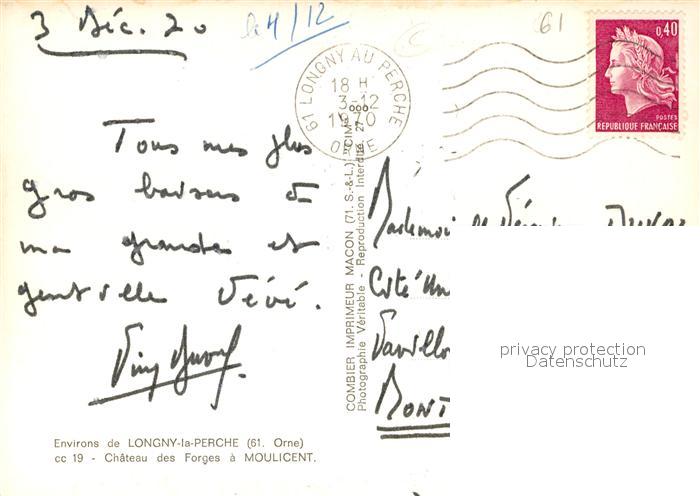 3 Déc. 70
le 4/12
61
61 LONGNY AU PERCHE
18 H
3-12
1970
ORNE
0,40
POSTES
REPUBLIQUE FRANÇAISE
Tous mes plus
gros baisers à
ma grande et
gentille Vévé.
COMBIER IMPRIMEUR MACON (71. S.-&-L.) "CIM"
Photographie Véritable - Reproduction Interdite
Mademoi
Cité
Pavillo
MONT
privacy protection
Datenschutz
Environs de LONGNY-la-PERCHE (61. Orne)
cc 19 - Château des Forges à MOULICENT.